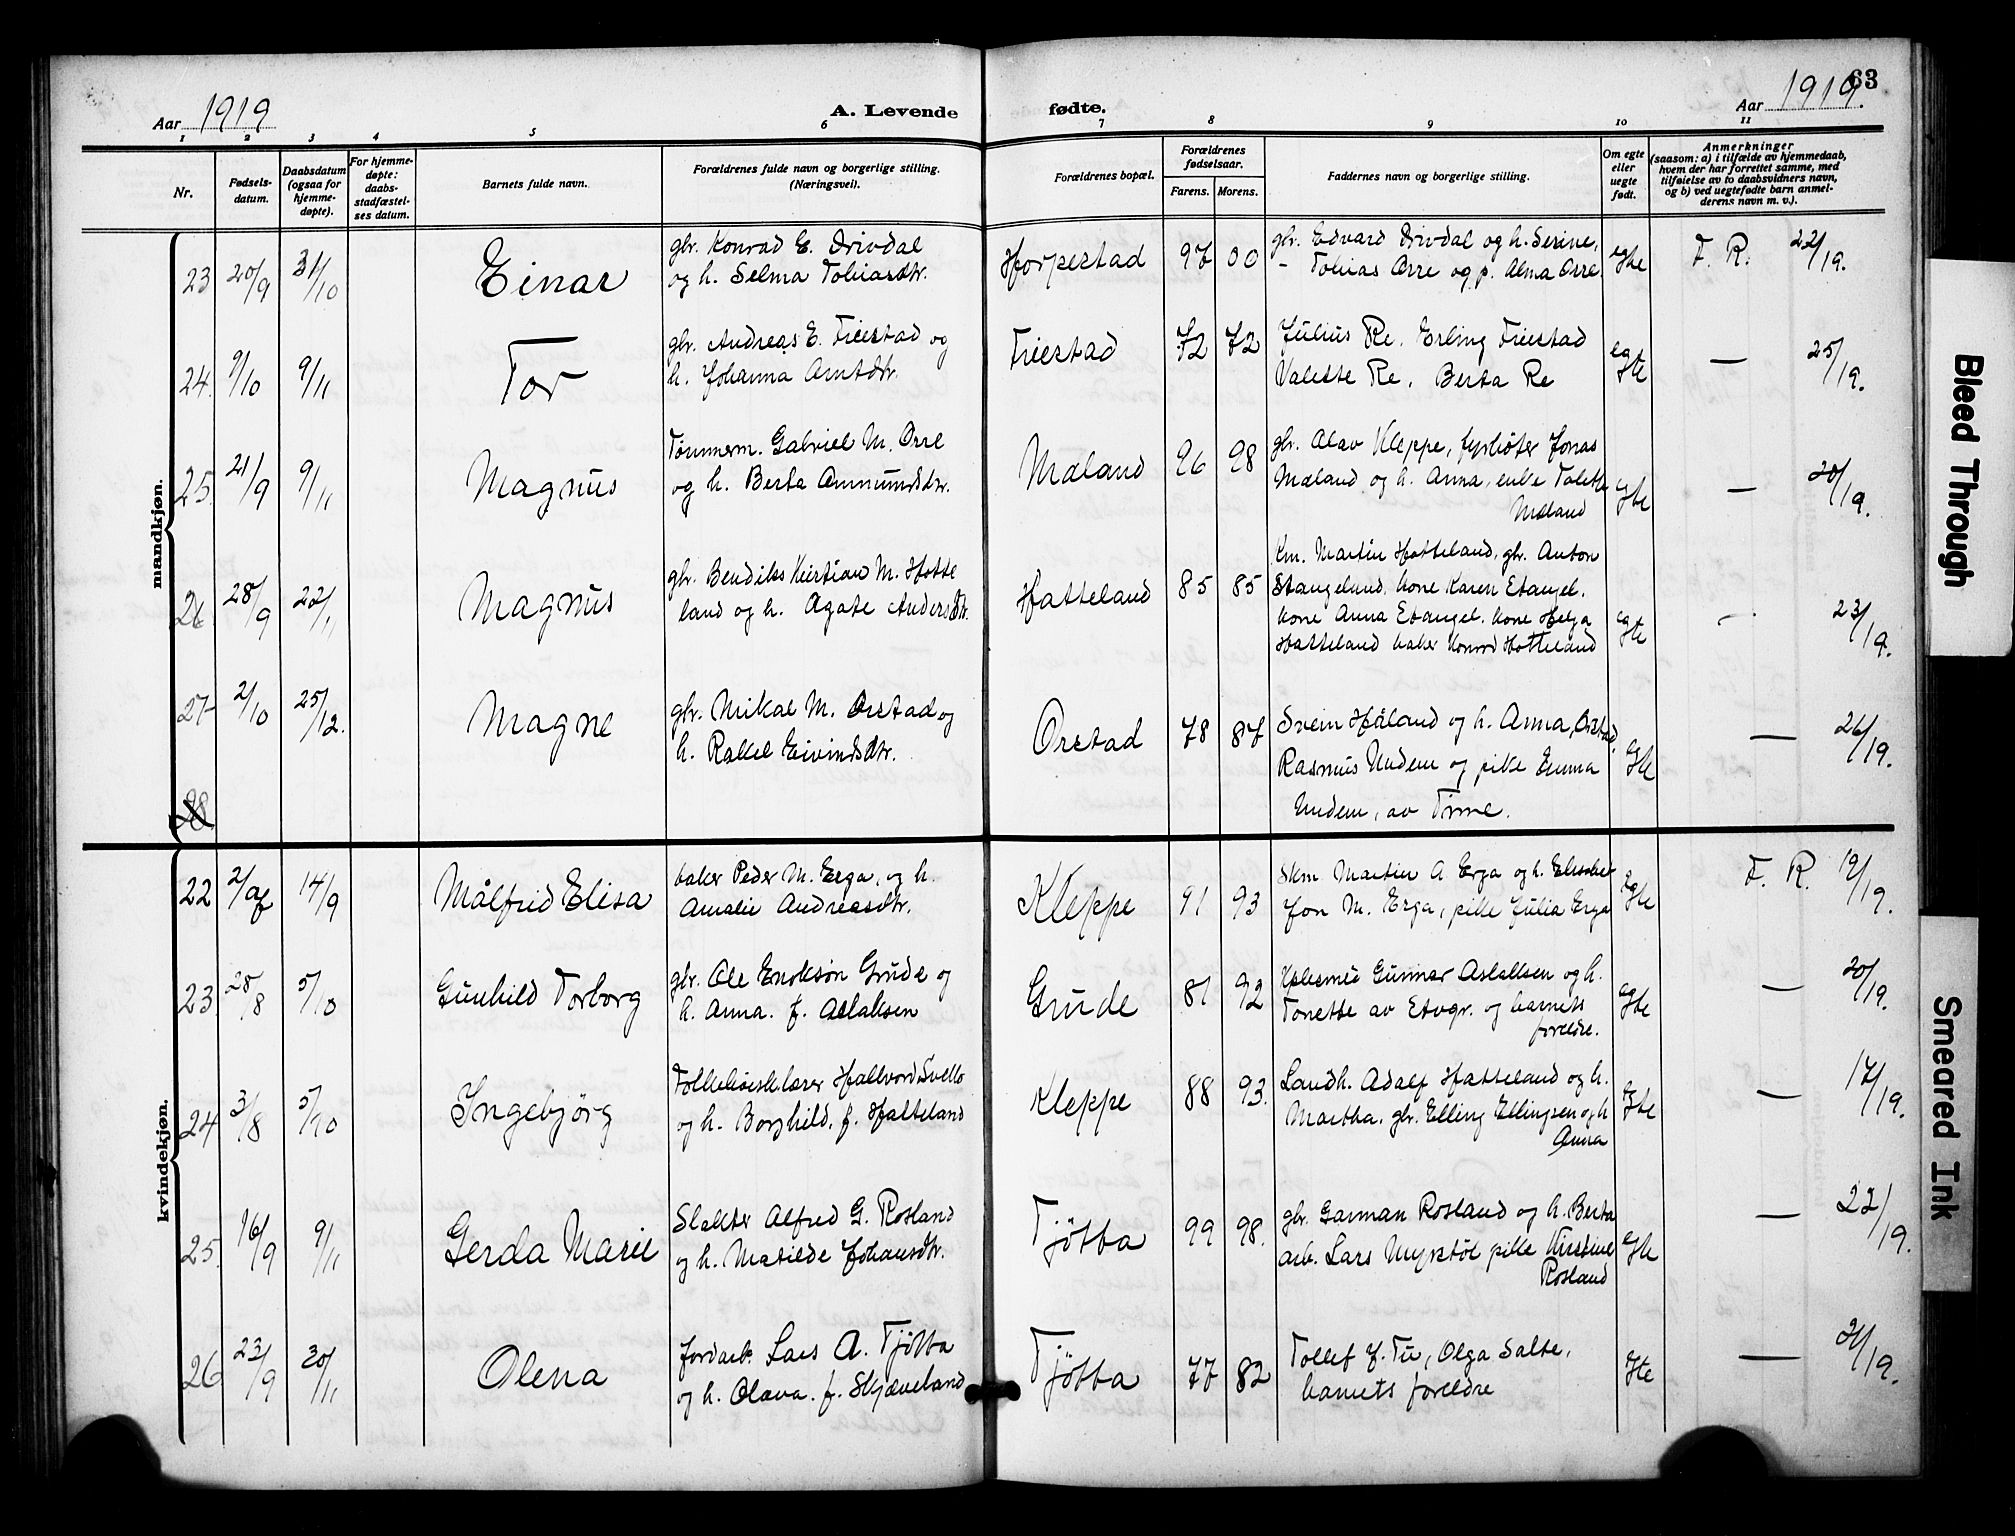 63
Aar 1919
A. Levende fødte.
Aar 1919.
1 2 3 4 5 6 7 8 9 10 11
Nr.
Fødsels-
datum.
Daabsdatum
(ogsaa for
hjemme-
døpte).
For hjemme-
døpte:
daabs-
stadfæstel-
ses datum.
Barnets fulde navn.
Forældrenes fulde navn og borgerlige stilling.
(Næringsvei).
Forældrenes bopæl.
Forældrenes
fødselsaar.
Farens. Morens.
Faddernes navn og borgerlige stilling.
Om egte
eller
uegte
født.
Anmerkninger
(saasom: a) i tilfælde av hjemmedaab,
hvem der har forrettet samme, med
tilføielse av to daabsvidners navn,
og b) ved uegtefødte barn anmel-
derens navn m. v.).
mandkjøn.
23 20/9 31/10 Einar
gbr. Konrad E. Drivdal
og h. Selma Tobiasdtr.
Horpestad 97 00
gbr. Edvard Drivdal og h. Serine,
- Tobias Orre og p. Alma Orre
egte F. R. 22/19.
24. 9/10 9/11 Tor
gbr. Andreas E. Friestad og
h. Johanna Arntsdtr.
Friestad 72 72
Julius Re, Erling Friestad
Valette Re, Berta Re
egte — 25/19.
25. 21/9 9/11 Magnus
Tømmerm. Gabriel M. Orre
og h. Berta Ommundsdtr.
Mæland 96 98
gbr. Olav Kleppe, fyrbøter Jonas
Mæland og h. Anna, enke Tolette
Mæland
egte — 20/19.
26. 28/9 22/11 Magnus
gbr. Bendiks Kristian M. Hatte
land og h. Agate Andersdtr.
Hatteland 85 85
Km. Martin Hatteland, gbr. Anton
Stangeland, kone Karen Stangel.
kone Anna Stangel. kone Helga
Hatteland baker Konrad Hatteland
egte - 23/19.
27 2/10 25/12. Magne
gbr. Mikal M. Orstad og
h. Rakel Eivindsdtr.
Orstad 78 87
Svein Håland og h. Anna, Orstad,
Rasmus Undem og pike Emma
Undem, av Time.
egte — 26/19.
28.
kvindekjøn.
22 2/9 14/9 Målfrid Elisa
baker Peder M. Erga, og h.
Amalie Andreasdtr.
Kleppe 91 93
Skm Martin A Erga og h. Elisabet
Jon M. Erga, pike Julia Erga
egte F. R. 19/19.
23. 28/8 5/10 Gunhild Torborg
gbr. Ole Enoksøn Grude og
h. Anna. f. Aslaksen
Grude 81 92
Gunnar Aslaksen og h.
Tonette av Stvgr. og barnets
foreldre.
egte — 20/19.
24 3/8 5/10 Ingebjørg
Folkehøiesk.lærer Hallvord Svello
og h. Borghild, f. Hatteland
Kleppe 88 93.
Landh. Adolf Hatteland og h.
Martha. gbr. Elling Ellingsen og h
Anna
egte — 17/19.
25. 16/9 9/11 Gerda Marie
Slakter Alfred G. Rosland
og h. Matilde Johansdtr.
Tjøtta 99 98.
gbr. Garman Rosland og h. Berta
arb. Lars Myrstøl pike Kristine
Rosland
egte — 22/19.
26 23/9 30/11 Olena
jordarb. Lars A. Tjøtta
og h. Olava. f. Skjæveland
Tjøtta 77 82
Tollef J. Tu, Olga Salte,
barnets foreldre
gte — 21/19.
Bleed Through
Smeared Ink